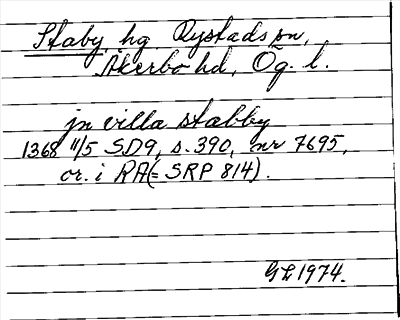 Staby, hg. Rystads sn,
Åkerbo hd, Ög. l.
jn villa stabby
1368 11/5 SD9, s. 390, nr 7695,
or. i RA (= SRP 814).
GL 1974.